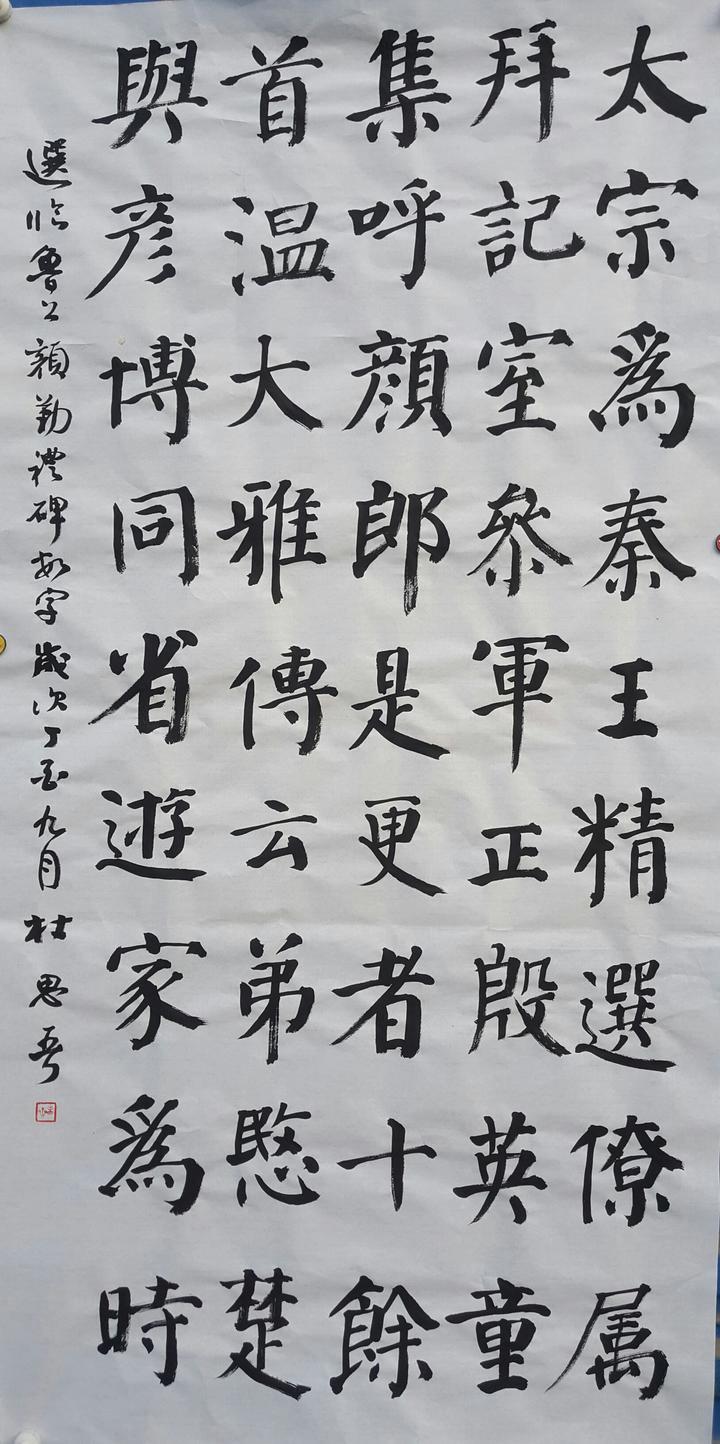 太宗為秦王精選僚属
拜記室參軍正殷英童
集呼顏郎是更者十餘
首温大雅傳云弟愍楚
與彦博同省遊家為時
選临魯公顏勤禮碑数字歲次丁酉九月杜思吾